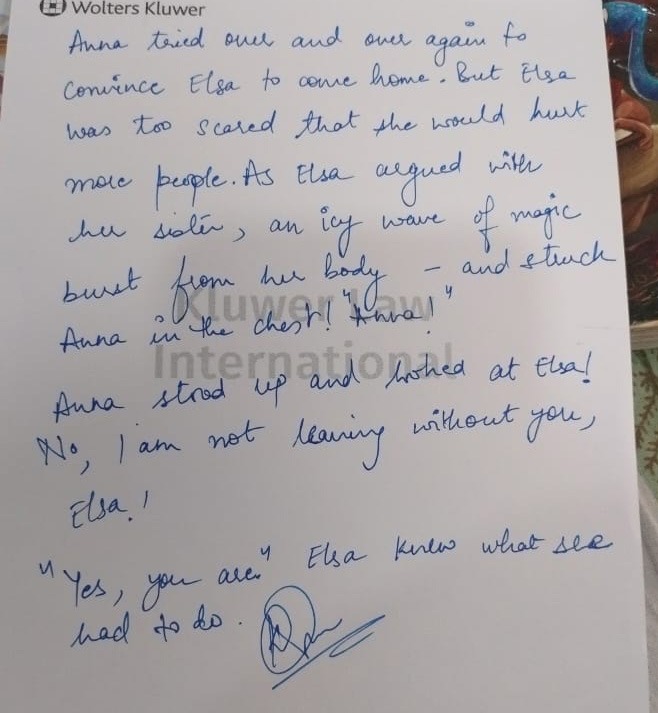 Wolters Kluwer
Anna tried over and over again to
convince Elsa to come home. But Elsa
was too scared that she would hurt
more people. As Elsa argued with
her sister, an icy wave of magic
burst from her body – and struck
Anna in the chest! "Anna!"
Kluwer Law
International
Anna stood up and looked at Elsa!
No, I am not leaving without you,
Elsa!
"Yes, you are." Elsa knew what see
had to do.